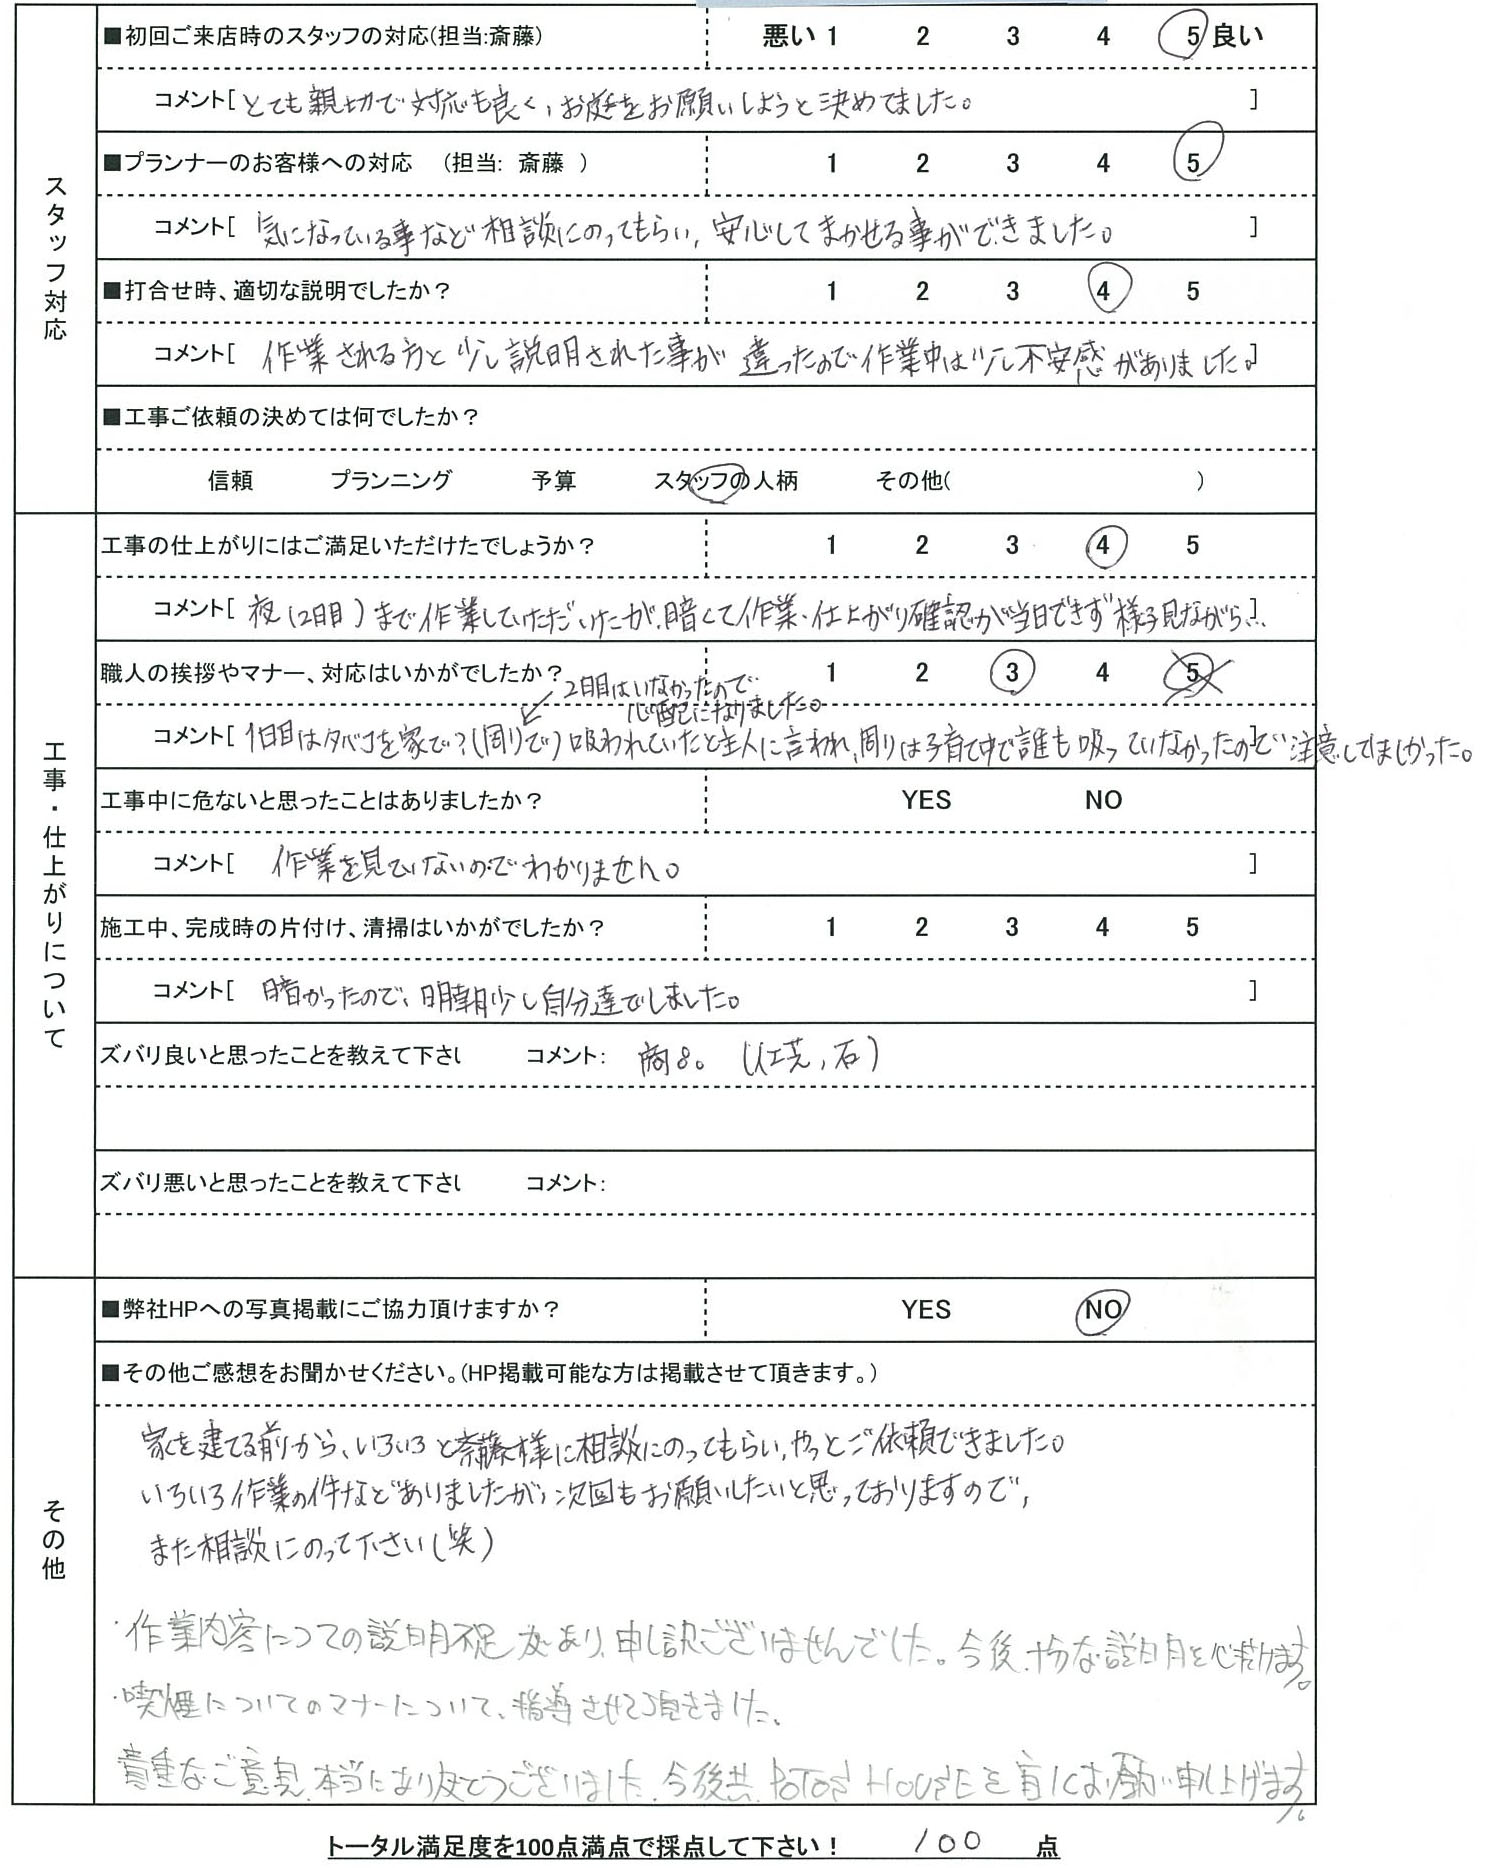 ■初回ご来店時のスタッフの対応(担当:斎藤) 悪い 1 2 3 4 5 良い
コメント[ とても親切で対応も良く、お庭をお願いしようと決めてました。 ]
スタッフ対応
■プランナーのお客様への対応 (担当: 斎藤 ) 1 2 3 4 5
コメント[ 気になっている事など相談にのってもらい、安心してまかせる事ができました。 ]
■打合せ時、適切な説明でしたか? 1 2 3 4 5
コメント[ 作業される方と少し説明された事が違ったので作業中は少し不安感がありました。]
■工事ご依頼の決めては何でしたか?
信頼 プランニング 予算 スタッフの人柄 その他( )
工事・仕上がりについて
工事の仕上がりにはご満足いただけたでしょうか? 1 2 3 4 5
コメント[ 夜(2日目)まで作業していただいたが、暗くて作業・仕上がり確認が当日できず様子見ながら…]
職人の挨拶やマナー、対応はいかがでしたか? 1 2 3 4 5
2日目はいなかったので
心配になりました。
コメント[ 1日目はタバコを家で?(周りで)吸われていたと主人に言われ、周りは子育て中で誰も吸っていなかったので注意してほしかった。
工事中に危ないと思ったことはありましたか? YES NO
コメント[ 作業を見ていないのでわかりません。 ]
施工中、完成時の片付け、清掃はいかがでしたか? 1 2 3 4 5
コメント[ 暗かったので、明朝少し自分達でしました。 ]
ズバリ良いと思ったことを教えて下さい コメント: 商品。(人工芝、石)
ズバリ悪いと思ったことを教えて下さい コメント:
その他
■弊社HPへの写真掲載にご協力頂けますか? YES NO
■その他ご感想をお聞かせください。(HP掲載可能な方は掲載させて頂きます。)
家を建てる前から、いろいろと斎藤様に相談にのってもらい、やっとご依頼できました。
いろいろ作業の件などありましたが、次回もお願いしたいと思っておりますので、
また相談にのって下さい(笑)
・作業内容につての説明不足があり、申し訳ございませんでした。今後、十分な説明を心掛けます。
・喫煙についてのマナーについて、指導させて頂きました。
貴重なご意見、本当にあり友とうございました。今後共、POTOS HOUSEを宜しくお願い申し上げます。
トータル満足度を100点満点で採点して下さい! 100 点